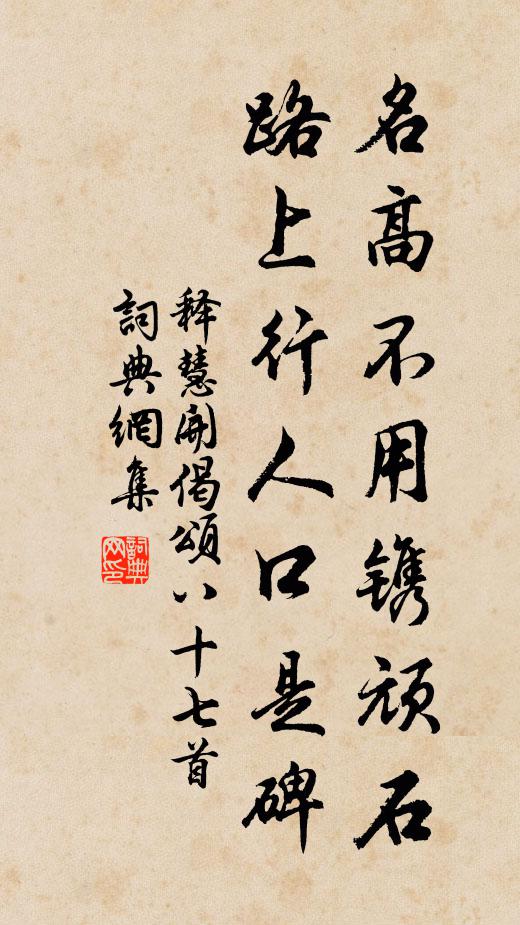 名高不用镌頑石
路上行人口是碑
释慧開偈頌八十七首
詞典網集
詞典網印